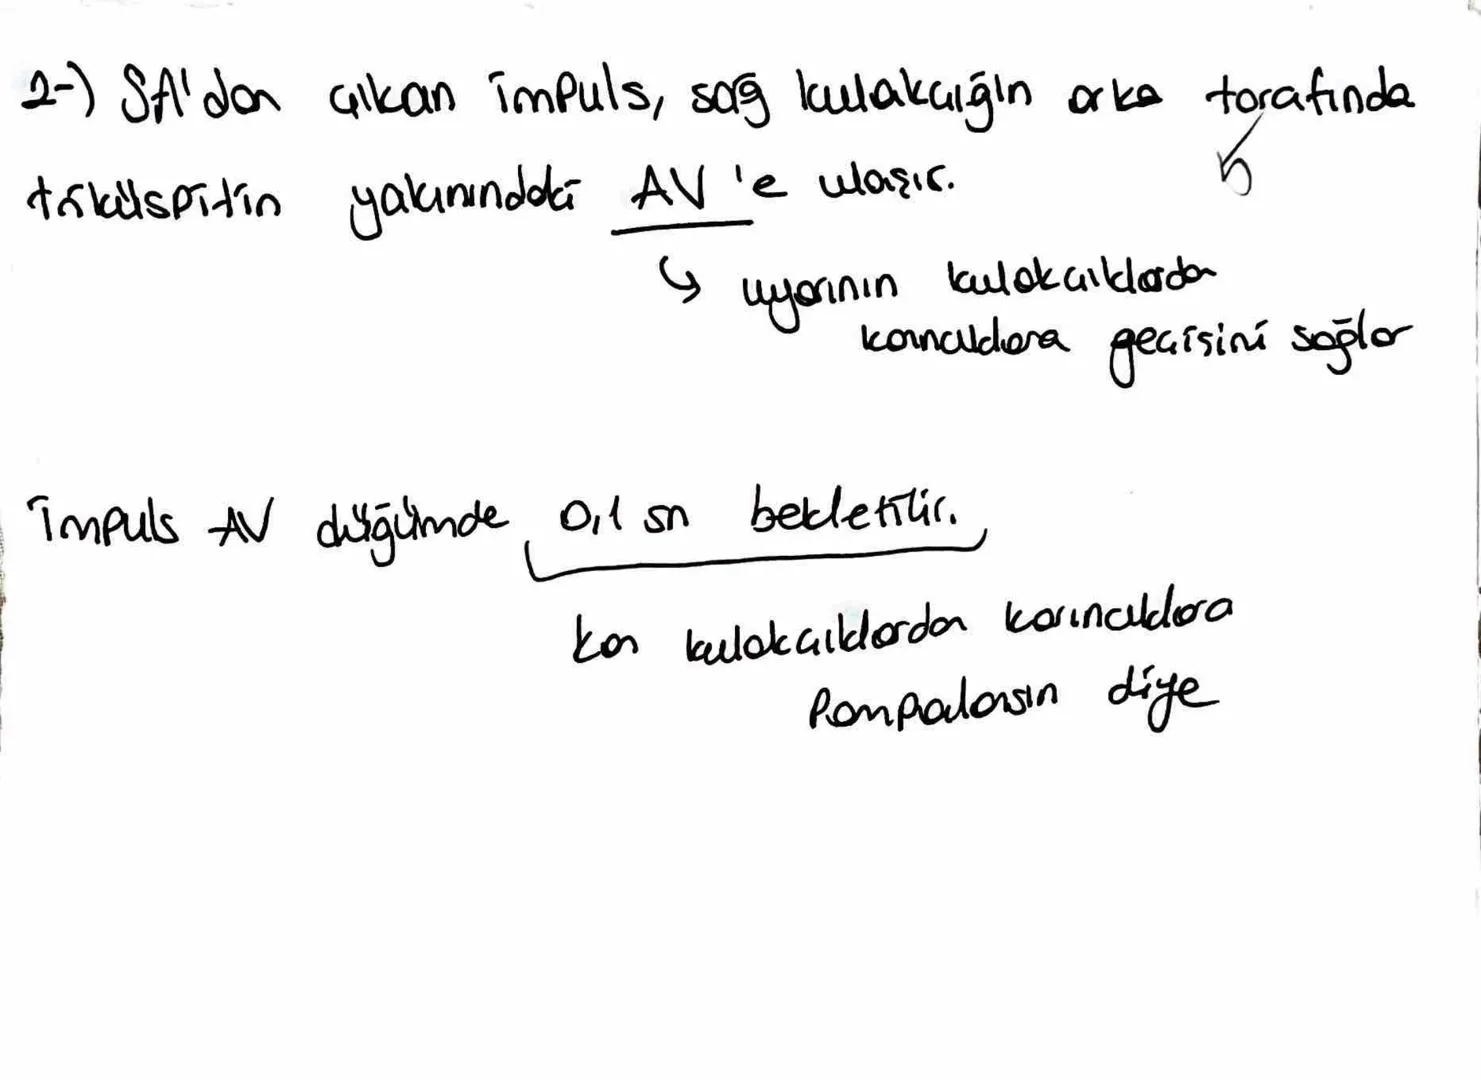 2-) SA'dan çıkan impuls, sağ kulakçığın arka tarafında
triküspitin yakınındaki AV'e ulaşır.
↳ uyarının kulakcıklardan
karıncıklara geçişini sağlar
İmpuls AV düğümde 0,1 sn bekletilir.
kan kulakcıklardan karıncıklara
Pompalansın diye